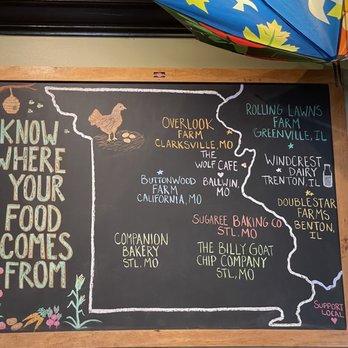 KNOW
WHERE
YOUR
FOOD
COMES
FROM
OVERLOOK
FARM
CLARKSVILLE, MO
THE
WOLF CAFE
BALLWIN,
MO
BUTTONWOOD
FARM
CALIFORNIA, MO
SUGAREE BAKING CO
STL. MO
COMPANION
BAKERY
STL. MO
THE BILLY GOAT
CHIP COMPANY
STL, MO
ROLLING LAWNS
FARM
GREENVILLE, IL
WINDCREST
DAIRY
TRENTON, IL
DOUBLE STAR
FARMS
BENTON,
IL
SUPPORT
LOCAL